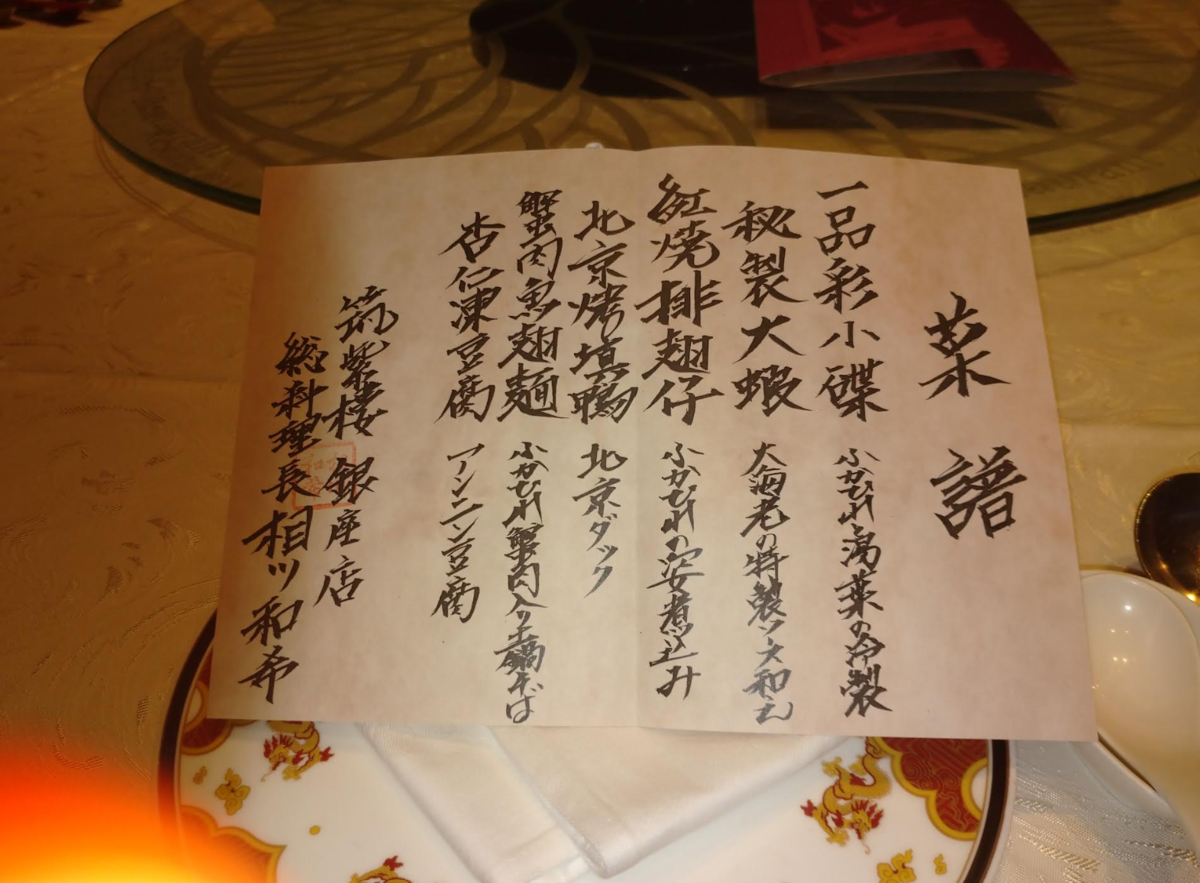 菜譜
一品彩小碟 ふかひれ湯葉の冷製
秘製大蝦 大海老の特製ソース和え
紅燒排翅仔 ふかひれの姿煮込み
北京烤填鴨 北京ダック
蟹肉魚翅麺 ふかひれ蟹肉入り土鍋そば
杏仁凍豆腐 アンニン豆腐
筑紫樓 銀座店
総料理長 相ツ和希